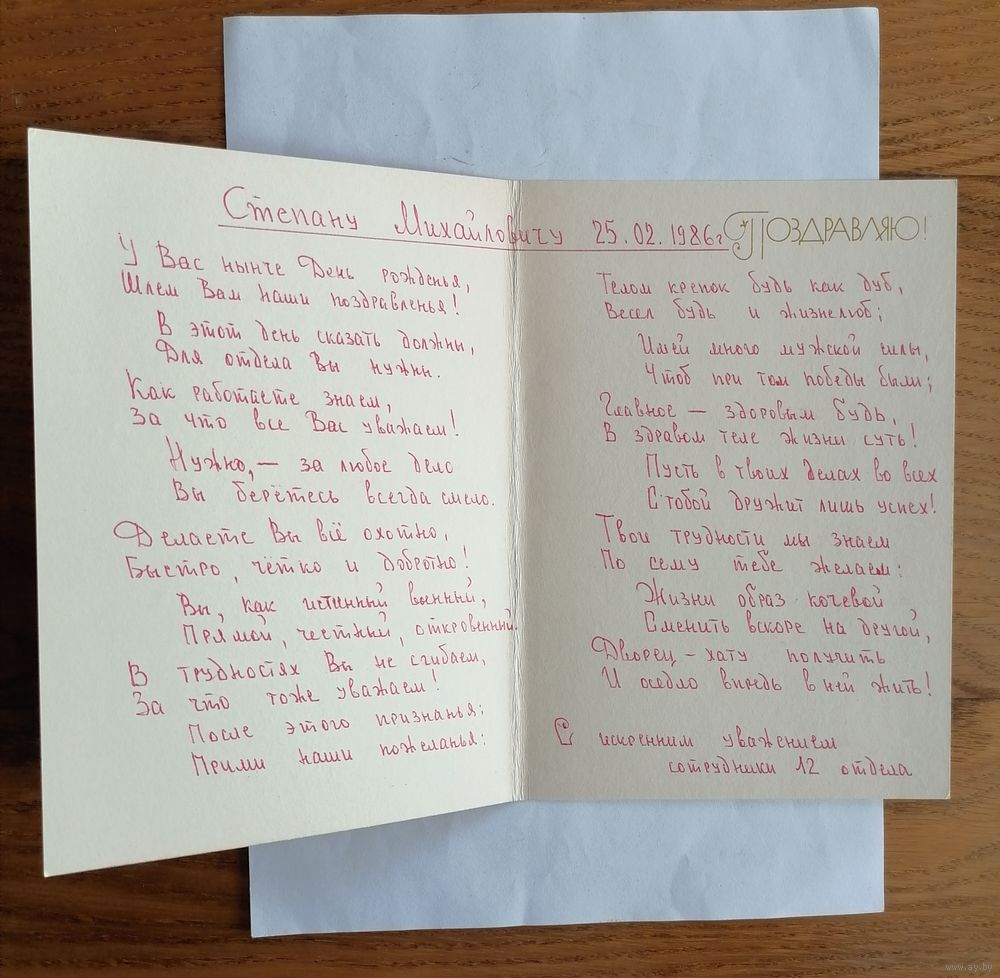 Степану Михайловичу 25.02.1986г
ПОЗДРАВЛЯЮ!
У Вас нынче День рожденья,
Шлем Вам наши поздравленья!
В этот день сказать должны,
Для отдела Вы нужны.
Как работаете знаем,
За что все Вас уважаем!
Нужно,— за любое дело
Вы берётесь всегда смело.
Делаете Вы всё охотно,
Быстро, чётко и добротно!
Вы, как истинный военный,
Прямой, честный, откровенный.
В трудностях Вы не сгибаем,
За что тоже уважаем!
После этого признанья:
Прими наши пожеланья:
Телом крепок будь как дуб,
Весел будь и жизнелюб;
Имей много мужской силы,
Чтоб при том победы были;
Главное — здоровым будь,
В здравом теле жизни суть!
Пусть в твоих делах во всех
С тобой дружит лишь успех!
Твои трудности мы знаем
По сему тебе желаем:
Жизни образ кочевой
Сменить вскоре на другой,
Дворец – хату получить
И оседло впредь в ней жить!
С искренним уважением
сотрудники 12 отдела
www.ay.by